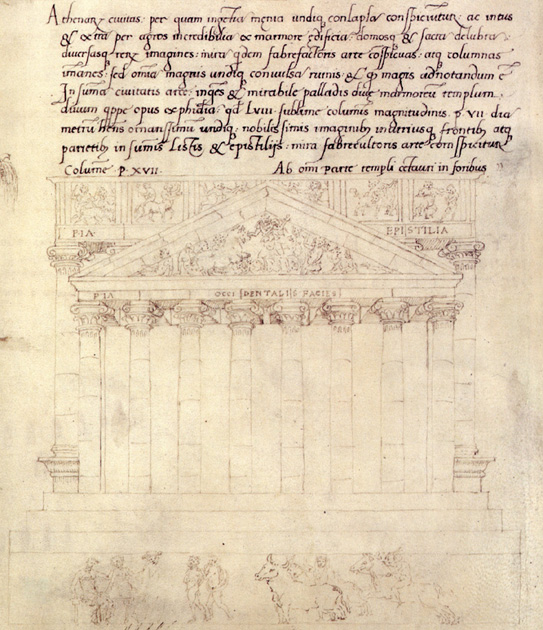 Athenarȝ ciuitas: per quam ingẽtia menia undiq, conlapsa conspiciuntur: ac intus
& extra per agros incredibilia ex marmore ędificia: domosq; & sacra delubra:
diuersasq, rerȝ imagines: mira qdem fabrefactoris arte cõspicuas: atq, columnas
imanes: sed omia magnis undiq, conuulsa ruinis & qp magis adnotandum ẽ
In suma ciuitatis arce: ingẽs & mirabile palladis diuę marmoreũ templum.
diuum qppe opus ex phidia: qd LVIII. sublime columis magnitudinis. p. VII. dia
metrũ hẽns ornatissimũ undiq; nobilissimis imaginibȝ in utriusq, frontibȝ atq,
parietibȝ in sumis Listis & epistilijs: mira fabrescultoris arte conspicitur
Columẽ . p. XVII.
Ab omi parte templi cẽtauri in foribus
PIA
EPISTILIA
PIA
OCCIDENTALIS FACIES